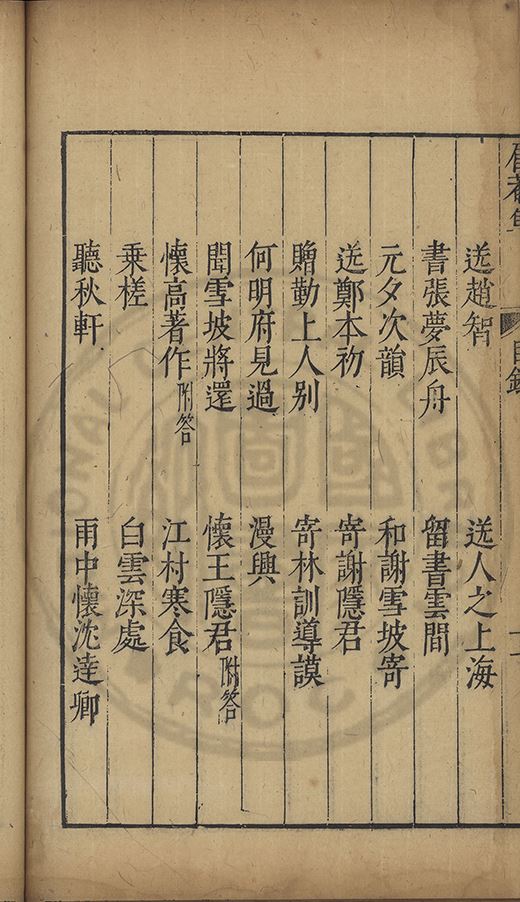 送趙智　送人之上海
書張夢辰舟　留書雲間
元夕次韻　和謝雪坡寄
送鄭本初　寄謝隱君
贈勤上人别　寄林訓導謨
何明府見過　漫興
聞雪坡將還　懷王隱君附答
懷高著作附答　江村寒食
乗槎　白雲深處
聽秋軒　雨中懷沈達卿